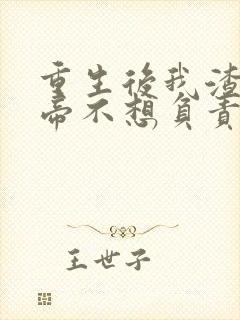 重生後我渣
帝不想負責
王世子